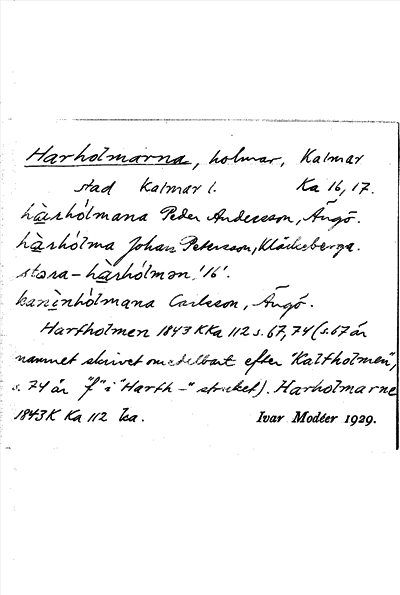 Harholmarna, holmar, Kalmar
stad Kalmar l. Ka 16, 17.
hàrhólmana Peder Andersson, Ängö.
hàrhólma Johan Petersson, Kläckeberga.
stora-hàrhólmən '16'.
kanìnhólmana Carlsson, Ängö.
Harfholmen 1843 K Ka 112 s. 67, 74 (s. 67 är
namnet skrivet omedelbart efter "Kalfholmen",
s. 74 är "f" i "Harfh-" struket). Harholmarne
1843 K Ka 112 ka. Ivar Modéer 1929.